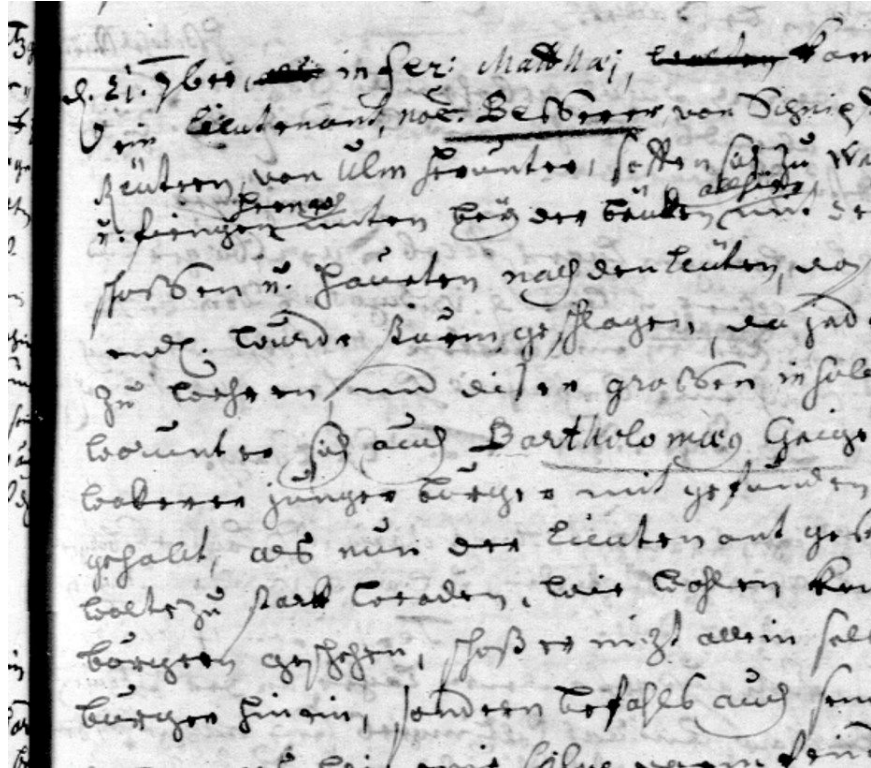 d. 21. 7bris, in fer: Matthaei, kam
ein Lieutenant, noe. Besserer, von Schnip
Reütern, von Ulm herunter, soffen sich zu
u. fiengen unten beÿ der bruken allhier mit de
schossen u. haueten nach den leüten, da
endl. wurde sturm geschlagen, da jed
zu wehren und disen grossen insole
worunter sich auch Bartholomaeus Geige
wakerer junger burger mit gefunden
gehabt, als nun der Lieutenant ges
wolte zu stark werden, wie wohlen kei
burgern geschehen, schoß er nicht allein selb
burger hinein, sondern befahls auch sein